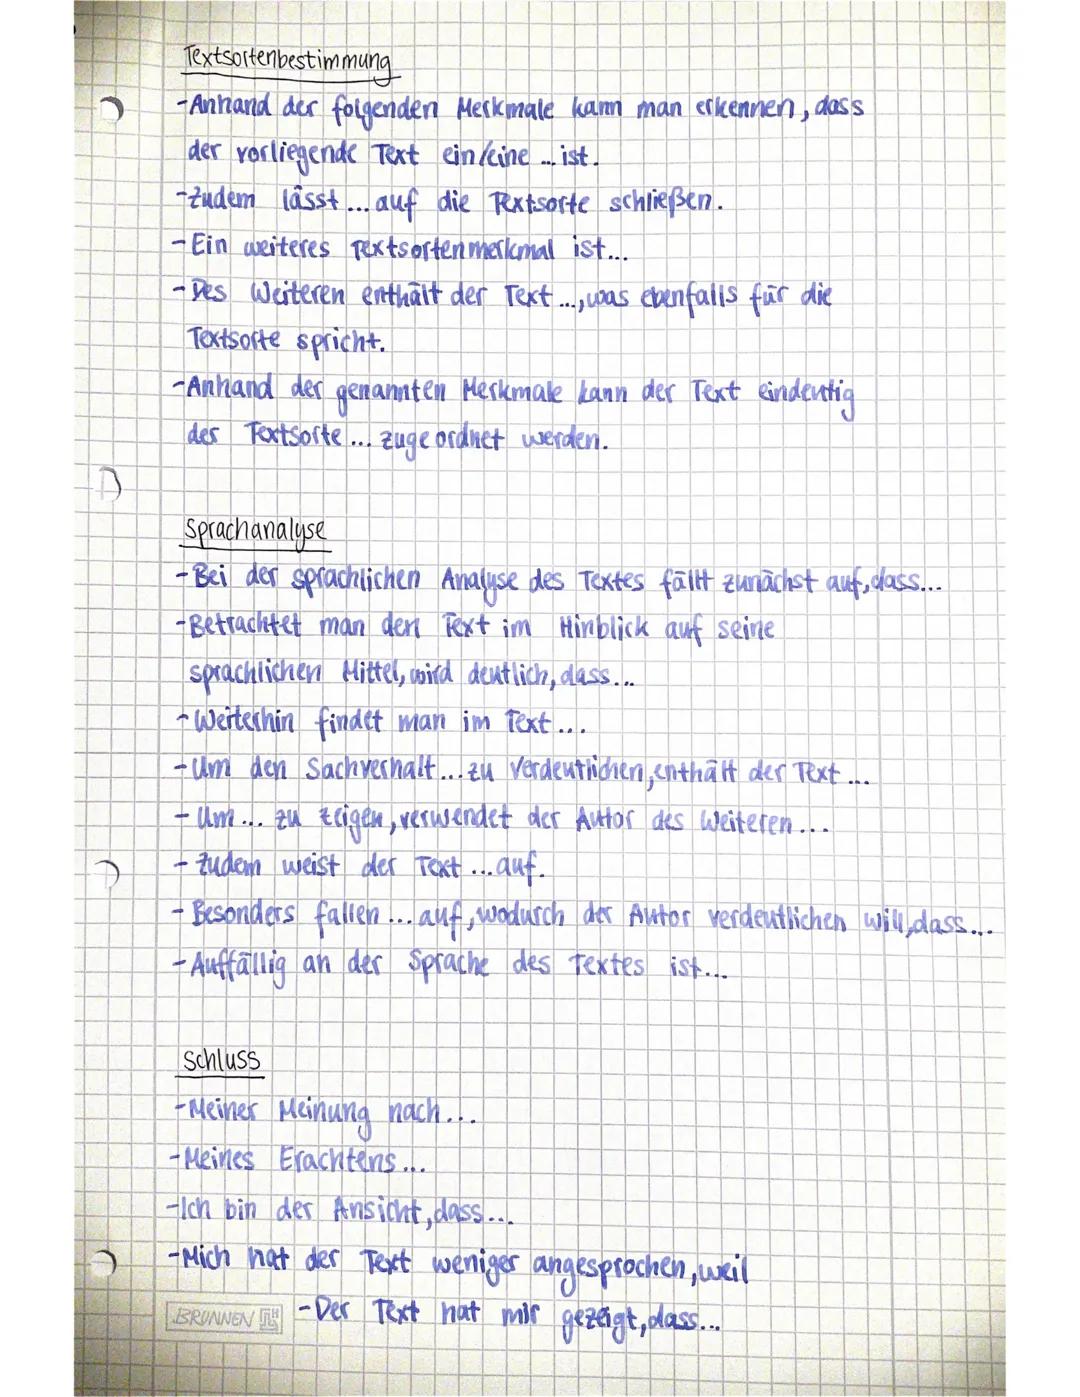 Textsortenbestimmung
-Anhand der folgenden Merkmale kann man erkennen, dass
der vorliegende Text ein/eine ... ist.
-Zudem lässt ... auf die Textsorte schließen.
-Ein weiteres Textsortenmerkmal ist...
-Des Weiteren enthält der Text ..., was ebenfalls für die
Textsorte spricht.
-Anhand der genannten Merkmale kann der Text eindeutig
der Textsorte ... zugeordnet werden.
Sprachanalyse
-Bei der sprachlichen Analyse des Textes fällt zunächst auf, dass...
-Betrachtet man den Text im Hinblick auf seine
sprachlichen Mittel, wird deutlich, dass...
-Weiterhin findet man im Text...
-Um den Sachverhalt ... zu verdeutlichen, enthält der Text ...
-Um ... zu zeigen, verwendet der Autor des Weiteren ...
-Zudem weist der Text ... auf.
-Besonders fallen ... auf, wodurch der Autor verdeutlichen will, dass...
-Auffällig an der Sprache des Textes ist...
Schluss
-Meiner Meinung nach...
-Meines Erachtens...
-Ich bin der Ansicht, dass...
-Mich hat der Text weniger angesprochen, weil
BRUNNEN -Der Text hat mir gezeigt, dass...